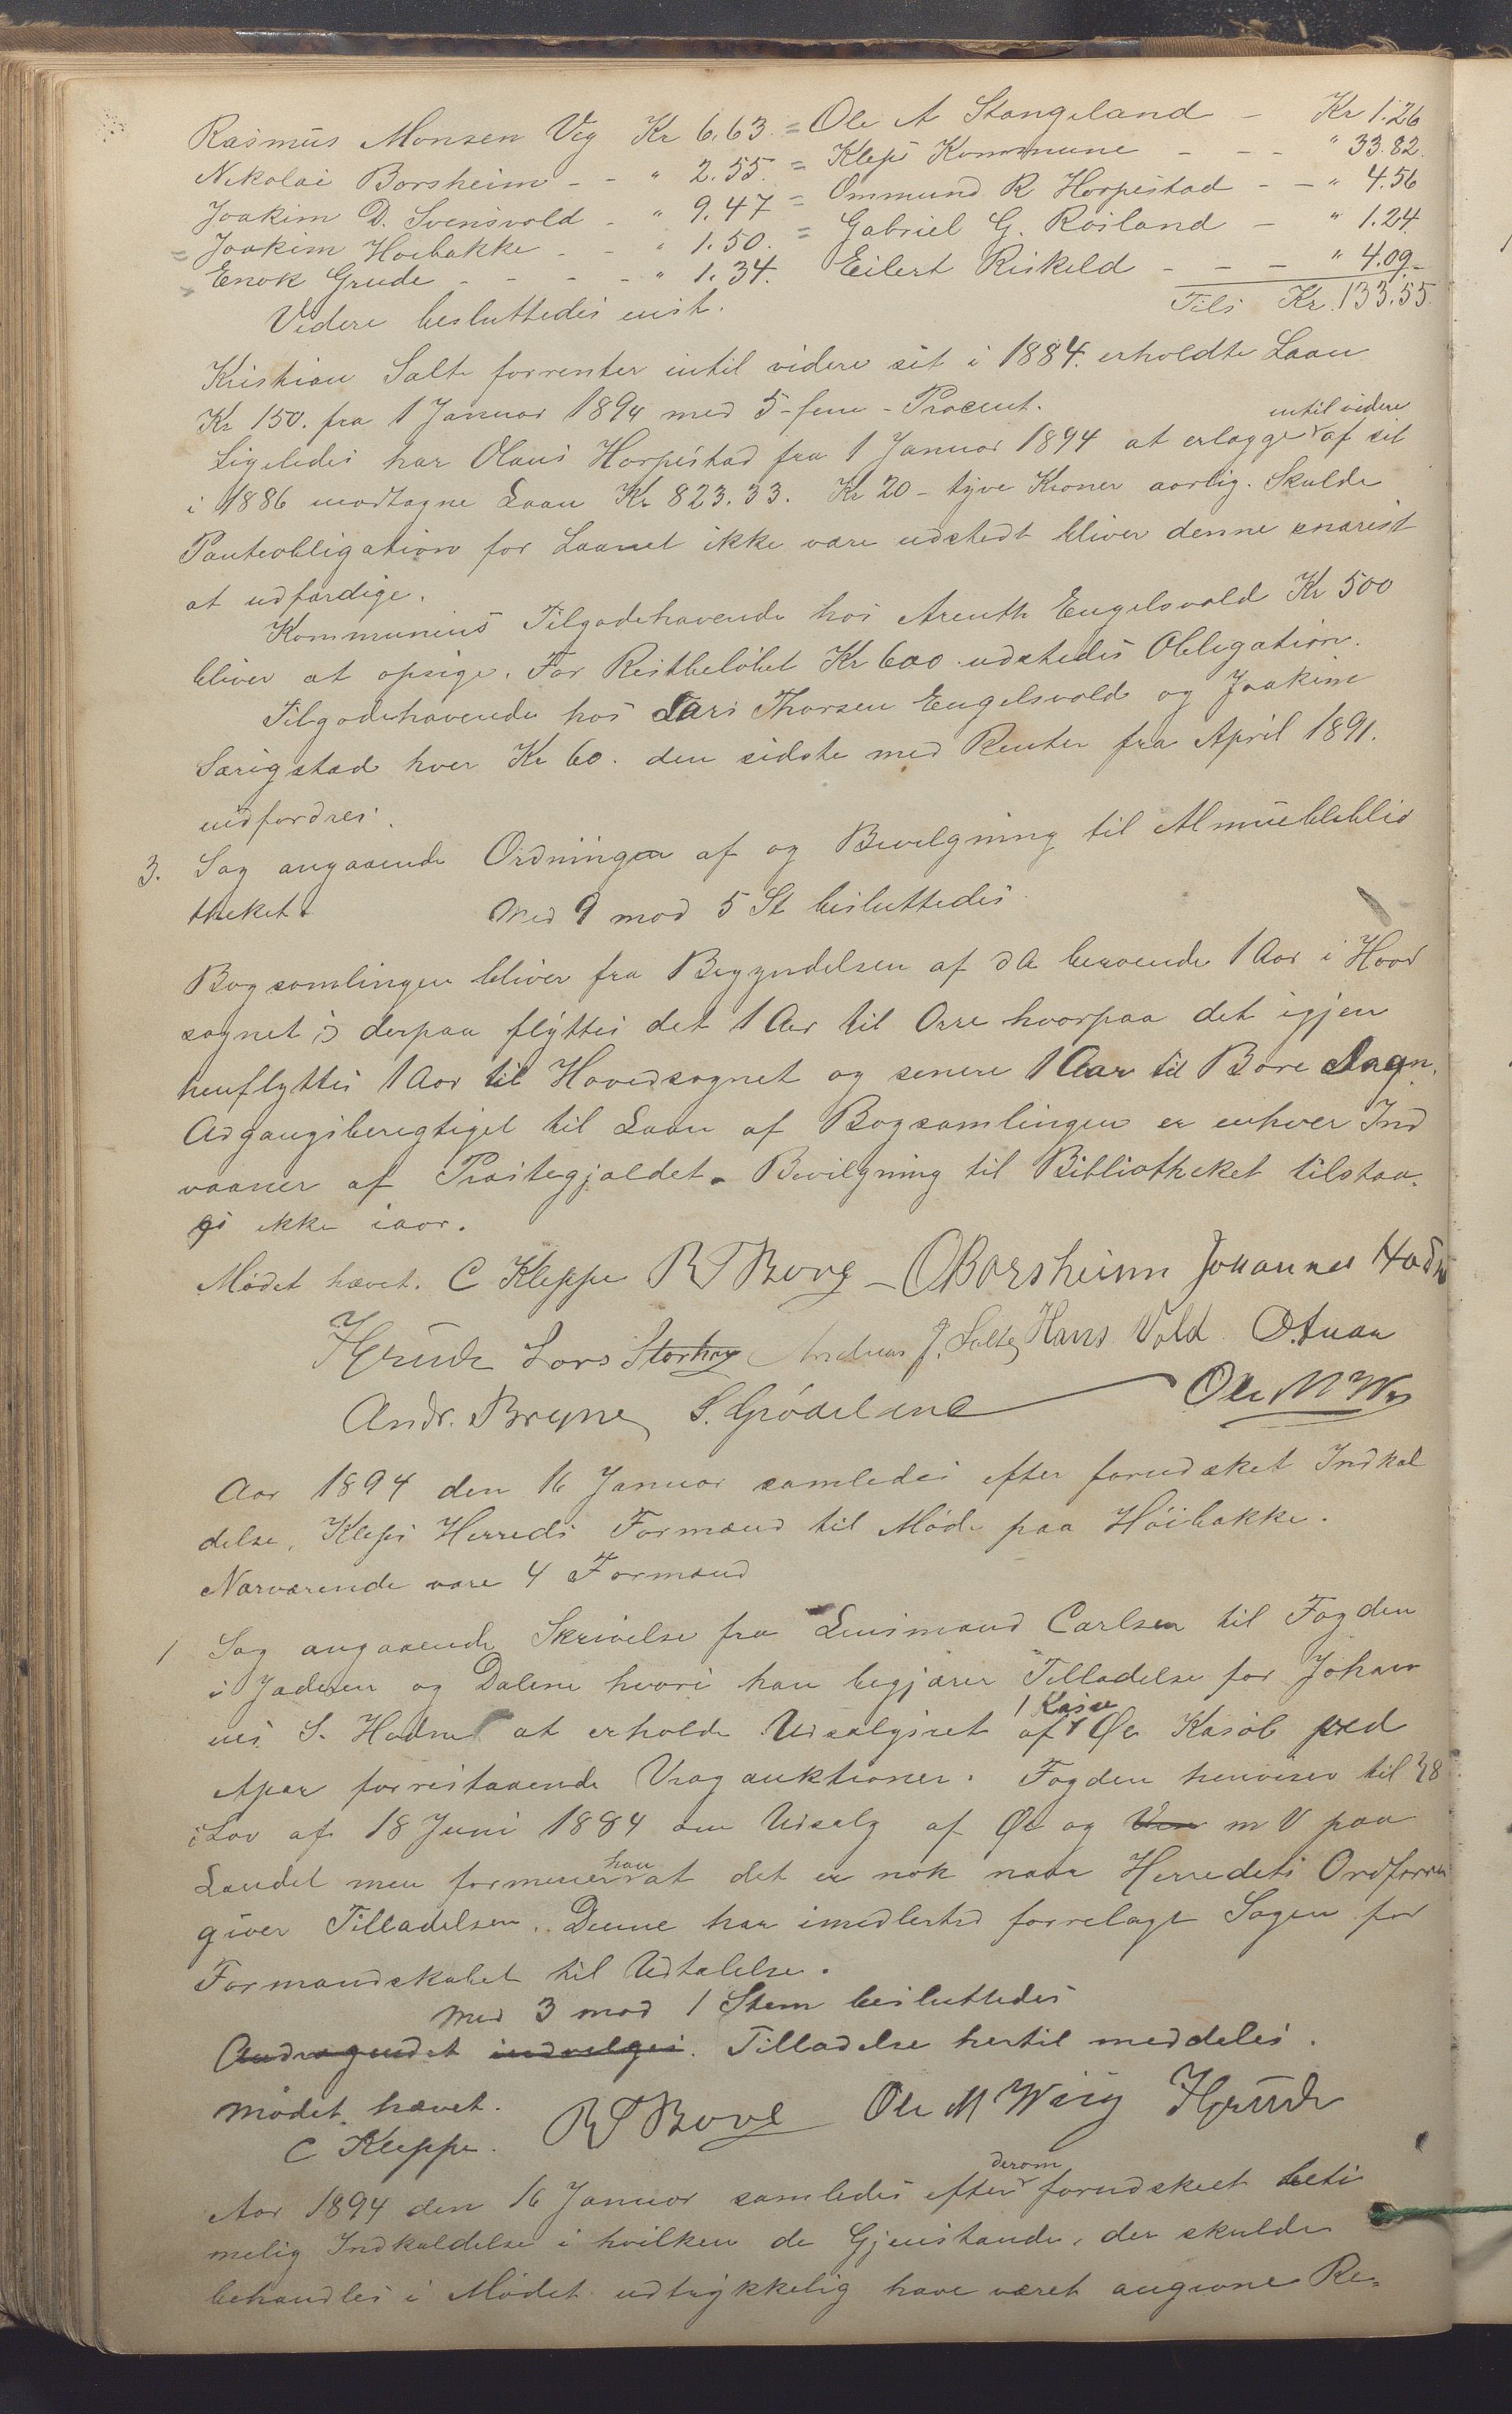 Rasmus Monsen Veg Kr 6.63. = Ole A Stangeland - Kr 1.26
Nikolai Borsheim - - " 2.55. = Kleps Kommune - - - " 33.82.
Joakim D. Svensvold - " 9.47 = Ommund R Horpestad - - " 4.56
= Joakim Hoibakke - - " 1.50. = Gabriel G. Roiland - " 1.24
= Enok Grude - - - - " 1.34. Eilert Riskeld - - - " 4.09.-
Videre besluttedes enst. Tils Kr. 133.55.
Kristian Salte forrenter indtil videre sit i 1884. erholdte Laan
Kr 150. fra 1 Januar 1894 med 5-fem-Procent.
Ligeledes har Olaus Horpestad fra 1 Januar 1894 at erlægge indtil videre af sit
i 1886 modtagne Laan Kr 823.33. Kr 20 - tyve Kroner aarlig. Skulde
Panteobligation for Laanet ikke være udstedt bliver denne snarest
at udfærdige.
Kommunens Tilgodehavende hos Arenth Engelsvold Kr 500
bliver at opsige. For Restbeløbet Kr 600. udstedes Obligation.
Tilgodehavende hos Lars Thorsen Engelsvold og Joakim
Særigstad hver Kr 60. den sidste med Renter fra April 1891.
indfordres.
3. Sag angaaende Ordningen af og Bevilgning til Almuebiblio
theket. Med 9 mod 5 St besluttedes
Bogsamlingen bliver fra Begyndelsen af d A beroende 1 Aar i Hoved
sognet; derpaa flyttes det 1 Aar til Orre hvorpaa det igjen
henflyttes 1 Aar til Hovedsognet og senere 1 Aar til Bore Sogn.
Adgangsberegtiget til Laan af Bogsamlingen er enhver Ind
vaaner af Præstegjældet. Bevilgning til Bibliotheket tilstaa-
es ikke iaar.
Mødet hævet. C Kleppe R T Bore - O Borsheim Johannes Hodne
H Grude Lars Storhoug Andreas J. Salte Hans Vold O. Tuan
Andr. Bryne S. Grødeland Ole M Wig
Aar 1894 den 16 Januar samledes efter forudsket Indkal
delse, Kleps Herreds Formænd til Møde paa Høibakke.
Nærværende vare 4 Formænd
1 Sag angaaende Skrivelse fra Lensmand Carlsen til Fogden
i Jæderen og Dalene hvori han begjærer Tilladelse for Johan
nes S. Hodne at erholde Udsalgsret af 1 Kasse Øl Kasøl ved
Apar forrestaaende Vragauktioner. Fogden henviser til § 8
i Lov af 18 Juni 1884 om Udsalg af Øl og Vin m V paa
Landet men formener han at det er nok naar Herredets Ordfører
giver Tilladelsen. Denne har imidlertid forrelagt Sagen for
Formandskabet til Udtalelse.
Med 3 mod 1 Stem besluttedes
Andragendet indvilges. Tilladelse hertil meddeles.
Mødet hævet.
C Kleppe. R T Bore Ole M Wiig H Grude
Aar 1894 den 16 Januar samledes efter derom forudskeet beti
melig Indkaldelse i hvilken de Gjenstande, der skulde
behandles i Mødet udtrykkelig have været angivne Re-